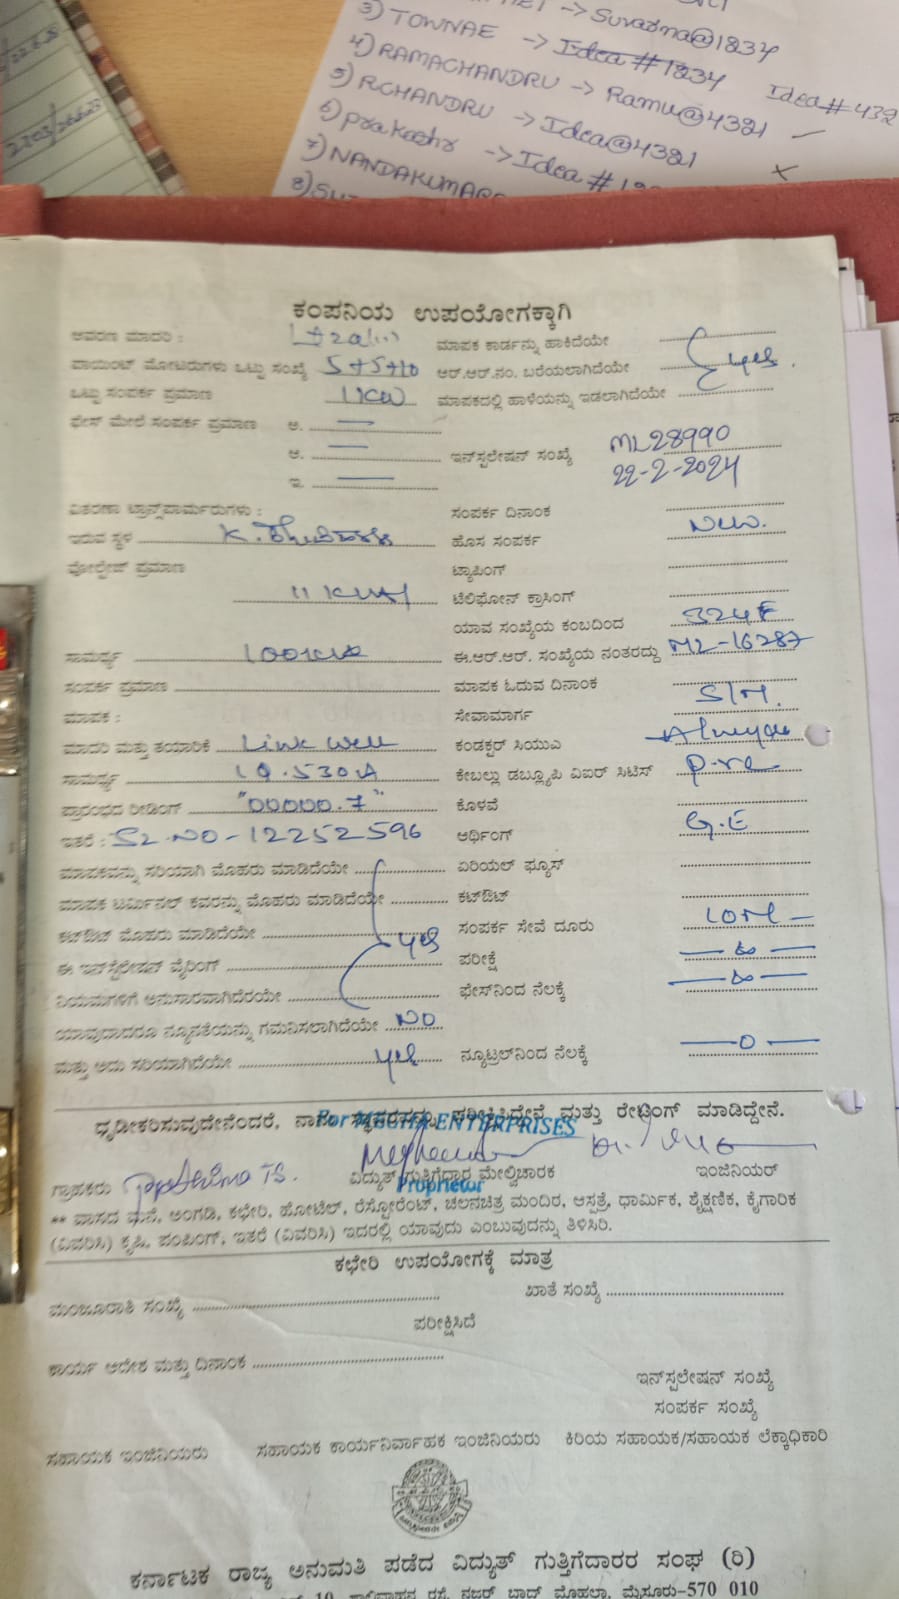 22.6.25
2203/26.6.23
-> Suvarna@1234
3) TOWNAE -> Idea # 1234 Idea # 432
4) RAMACHANDRU -> Ramu@4321
5) RCHANDRU -> Idea@4321
6) prakashr -> Idea #
7) NANDAKUMAR
8)
ಕಂಪನಿಯ ಉಪಯೋಗಕ್ಕಾಗಿ
ಆವರಣ ಮಾದರಿ : ಮಾಪಕ ಕಾರ್ಡನ್ನು ಹಾಕಿದೆಯೇ
ಪಾಯಿಂಟ್ ಮೋಟರುಗಳು ಒಟ್ಟು ಸಂಖ್ಯೆ 5+5+10 ಆರ್.ಆರ್.ನಂ. ಬರೆಯಲಾಗಿದೆಯೇ yes.
ಒಟ್ಟು ಸಂಪರ್ಕ ಪ್ರಮಾಣ 11KW ಮಾಪಕದಲ್ಲಿ ಹಾಳೆಯನ್ನು ಇಡಲಾಗಿದೆಯೇ
ಫೇಸ್ ಮೇಲೆ ಸಂಪರ್ಕ ಪ್ರಮಾಣ ಅ. —
ಆ. — ಇನ್‌ಸ್ಟಲೇಷನ್ ಸಂಖ್ಯೆ ML28990
ಇ. — 22-2-2024
ವಿತರಣಾ ಟ್ರಾನ್ಸ್‌ಫಾರ್ಮರುಗಳು : ಸಂಪರ್ಕ ದಿನಾಂಕ
ಇರುವ ಸ್ಥಳ ಹೊಸ ಸಂಪರ್ಕ New.
ವೋಲ್ಟೇಜ್ ಪ್ರಮಾಣ ಟ್ಯಾಪಿಂಗ್
ಟೆಲಿಫೋನ್ ಕ್ರಾಸಿಂಗ್
ಯಾವ ಸಂಖ್ಯೆಯ ಕಂಬದಿಂದ
ಸಾಮರ್ಥ್ಯ 100KVA ಈ.ಆರ್.ಆರ್. ಸಂಖ್ಯೆಯ ನಂತರದ್ದು ML-16287
ಸಂಪರ್ಕ ಪ್ರಮಾಣ ಮಾಪಕ ಓದುವ ದಿನಾಂಕ
ಮಾಪಕ : ಸೇವಾಮಾರ್ಗ S/M.
ಮಾದರಿ ಮತ್ತು ತಯಾರಿಕೆ Link well ಕಂಡಕ್ಟರ್ ಸಿಯುಎ
ಸಾಮರ್ಥ್ಯ ಕೇಬಲ್ಲು ಡಬ್ಲ್ಯೂಪಿ ವಿಐರ್ ಸಿಟಿಸ್
ಪ್ರಾರಂಭದ ರೀಡಿಂಗ್ "00000.7" ಕೊಳವೆ
ಇತರೆ : SL-NO-12252596 ಆರ್ಥಿಂಗ್ G.E
ಮಾಪಕವನ್ನು ಸರಿಯಾಗಿ ಮೊಹರು ಮಾಡಿದೆಯೇ ಏರಿಯಲ್ ಫ್ಯೂಸ್
ಮಾಪಕ ಟರ್ಮಿನಲ್ ಕವರನ್ನು ಮೊಹರು ಮಾಡಿದೆಯೇ ಕಟ್‌ಔಟ್
ಕಟ್‌ಔಟ್ ಮೊಹರು ಮಾಡಿದೆಯೇ yes ಸಂಪರ್ಕ ಸೇವೆ ದೂರು
ಈ ಇನ್‌ಸ್ಟಲೇಷನ್ ವೈರಿಂಗ್ ಪರೀಕ್ಷೆ
ನಿಯಮಗಳಿಗೆ ಅನುಸಾರವಾಗಿದೆರಯೇ ಫೇಸ್‌ನಿಂದ ನೆಲಕ್ಕೆ
ಯಾವುದಾದರೂ ನ್ಯೂನತೆಯನ್ನು ಗಮನಿಸಲಾಗಿದೆಯೇ NO
ಮತ್ತು ಅದು ಸರಿಯಾಗಿದೆಯೇ yes ನ್ಯೂಟ್ರಲ್‌ನಿಂದ ನೆಲಕ್ಕೆ —0—
ಧೃಡೀಕರಿಸುವುದೇನೆಂದರೆ, ನಾನು ಸ್ಥಾವರವನ್ನು ಪರೀಕ್ಷಿಸಿದ್ದೇನೆ ಮತ್ತು ರೇಟಿಂಗ್ ಮಾಡಿದ್ದೇನೆ.
For MEGHA ENTERPRISES
ಗ್ರಾಹಕರು ವಿದ್ಯುತ್ ಗುತ್ತಿಗೆದಾರ ಮೇಲ್ವಿಚಾರಕ ಇಂಜಿನಿಯರ್
Proprietor
** ವಾಸದ ಮನೆ, ಅಂಗಡಿ, ಕಛೇರಿ, ಹೋಟೆಲ್, ರೆಸ್ಟೋರೆಂಟ್, ಚಲನಚಿತ್ರ ಮಂದಿರ, ಆಸ್ಪತ್ರೆ, ಧಾರ್ಮಿಕ, ಶೈಕ್ಷಣಿಕ, ಕೈಗಾರಿಕ
(ವಿವರಿಸಿ) ಕೃಷಿ, ಪಂಪಿಂಗ್, ಇತರೆ (ವಿವರಿಸಿ) ಇದರಲ್ಲಿ ಯಾವುದು ಎಂಬುವುದನ್ನು ತಿಳಿಸಿರಿ.
ಕಛೇರಿ ಉಪಯೋಗಕ್ಕೆ ಮಾತ್ರ
ಮಂಜೂರಾತಿ ಸಂಖ್ಯೆ ಖಾತೆ ಸಂಖ್ಯೆ
ಪರೀಕ್ಷಿಸಿದೆ
ಕಾರ್ಯ ಆದೇಶ ಮತ್ತು ದಿನಾಂಕ
ಇನ್‌ಸ್ಪಲೇಷನ್ ಸಂಖ್ಯೆ
ಸಂಪರ್ಕ ಸಂಖ್ಯೆ
ಸಹಾಯಕ ಇಂಜಿನಿಯರು ಸಹಾಯಕ ಕಾರ್ಯನಿರ್ವಾಹಕ ಇಂಜಿನಿಯರು ಕಿರಿಯ ಸಹಾಯಕ/ಸಹಾಯಕ ಲೆಕ್ಕಾಧಿಕಾರಿ
ಕರ್ನಾಟಕ ರಾಜ್ಯ ಅನುಮತಿ ಪಡೆದ ವಿದ್ಯುತ್ ಗುತ್ತಿಗೆದಾರರ ಸಂಘ (ರಿ)
10, ಶಾಲಿವಾಹನ ರಸ್ತೆ, ನಜರ್ ಬಾದ್ ಮೊಹಲ್ಲಾ, ಮೈಸೂರು-570 010